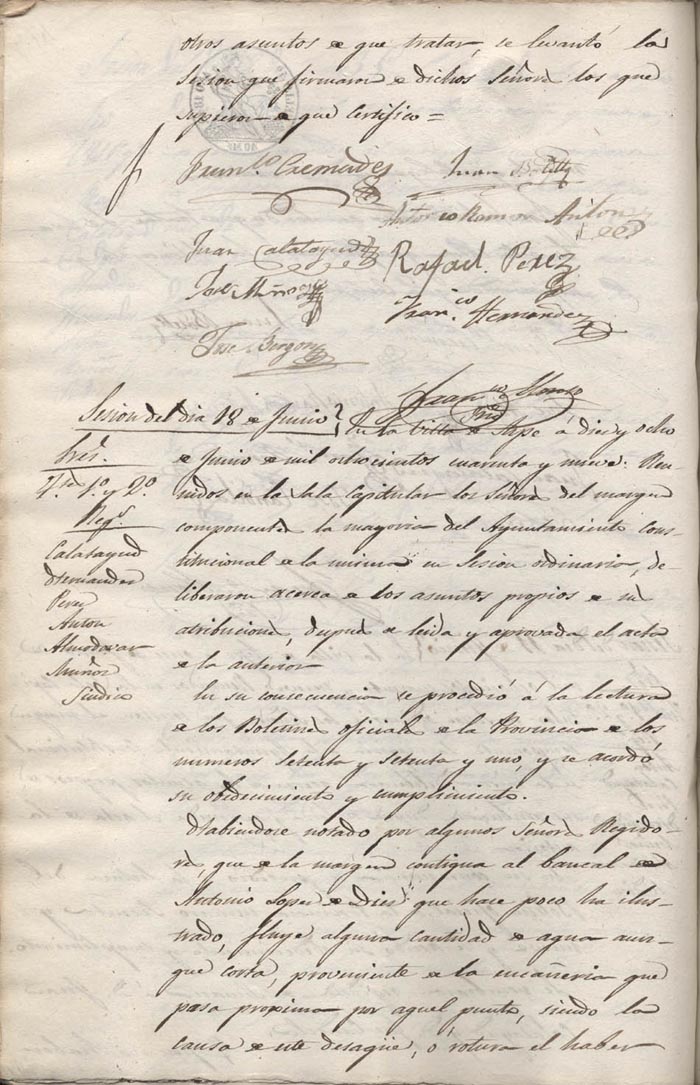 otros asuntos de que tratar, se levantó la
Sesion que firmaron de dichos Señores los que
supieron de que Certifico=
Fran.co Cremades
Juan Botella
Antonio Ramon Anton
Juan Calatayud
Rafael Perez
José Muñoz
Fran.co Hernandez
José Borgoñ
Fran.co
Srio
Sesion del dia 18 de Junio
Sres.
Ten 1.º y 2.º
Reg.s
Calatayud
Hernandez
Perez
Anton
Almodovar
Muñoz
Sindico
En la Villa de Aspe á diez y ocho
de Junio de mil ochocientos cuarenta y nueve: Reu-
nidos en la Sala Capitular los Señores del margen
componentes la mayoria del Ayuntamiento Cons-
titucional de la misma en Sesion ordinaria, de-
liberaron acerca de los asuntos propios de su
atribucion, despues de leida y aprovada el acta
de la anterior
En su consecuencia se procedió á la lectura
de los Boletines oficiales de la Provincia de los
numeros setenta y setenta y uno, y se acordó
su obedecimiento y cumplimiento.
Habiendose notado por algunos Señores Regido-
res, que de la margen contigua al bancal de
Antonio Lopez que hace poco ha
fluye alguna cantidad de agua aun-
que corta, proveniente de la encañeria que
pasa propima por aquel punto, siendo la
causa de este desagüe, ó rotura el haber